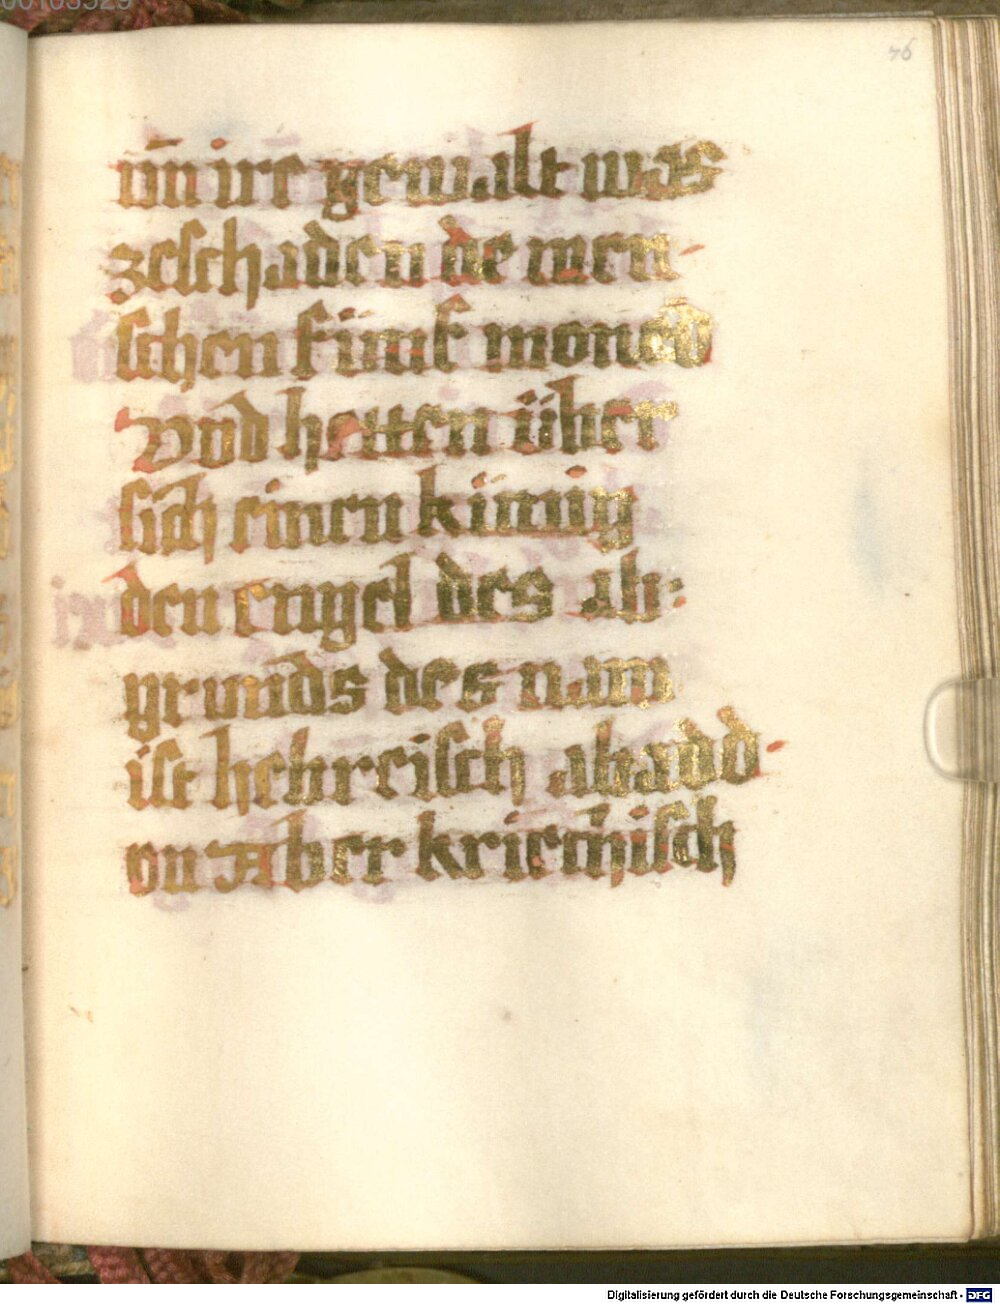 00103529
76
vn̄ ire gewalt was
zeschaden de men-
schen fünf moned
vnd hetten über
sich einen künig
den engel des ab-
grunds des nam
ist hebreisch abadd-
on Aber kriechisch
Digitalisierung gefördert durch die Deutsche Forschungsgemeinschaft - DFG